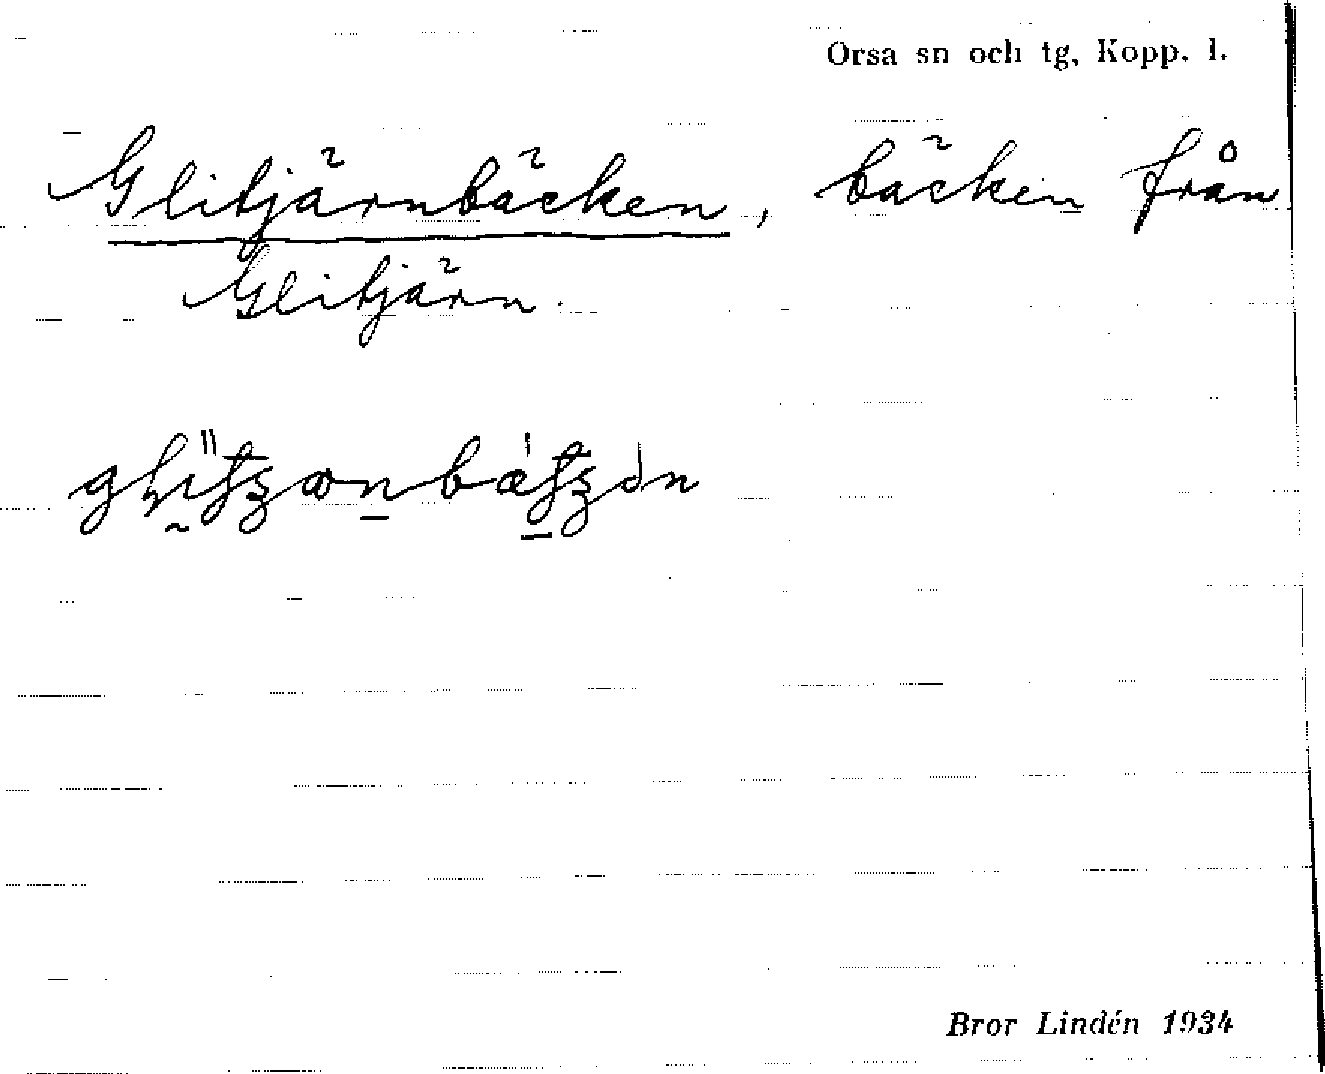 Orsa sn och tg, Kopp. l.
Glitjärnbäcken, bäcken från
Glitjärn.
Bror Lindén 1934